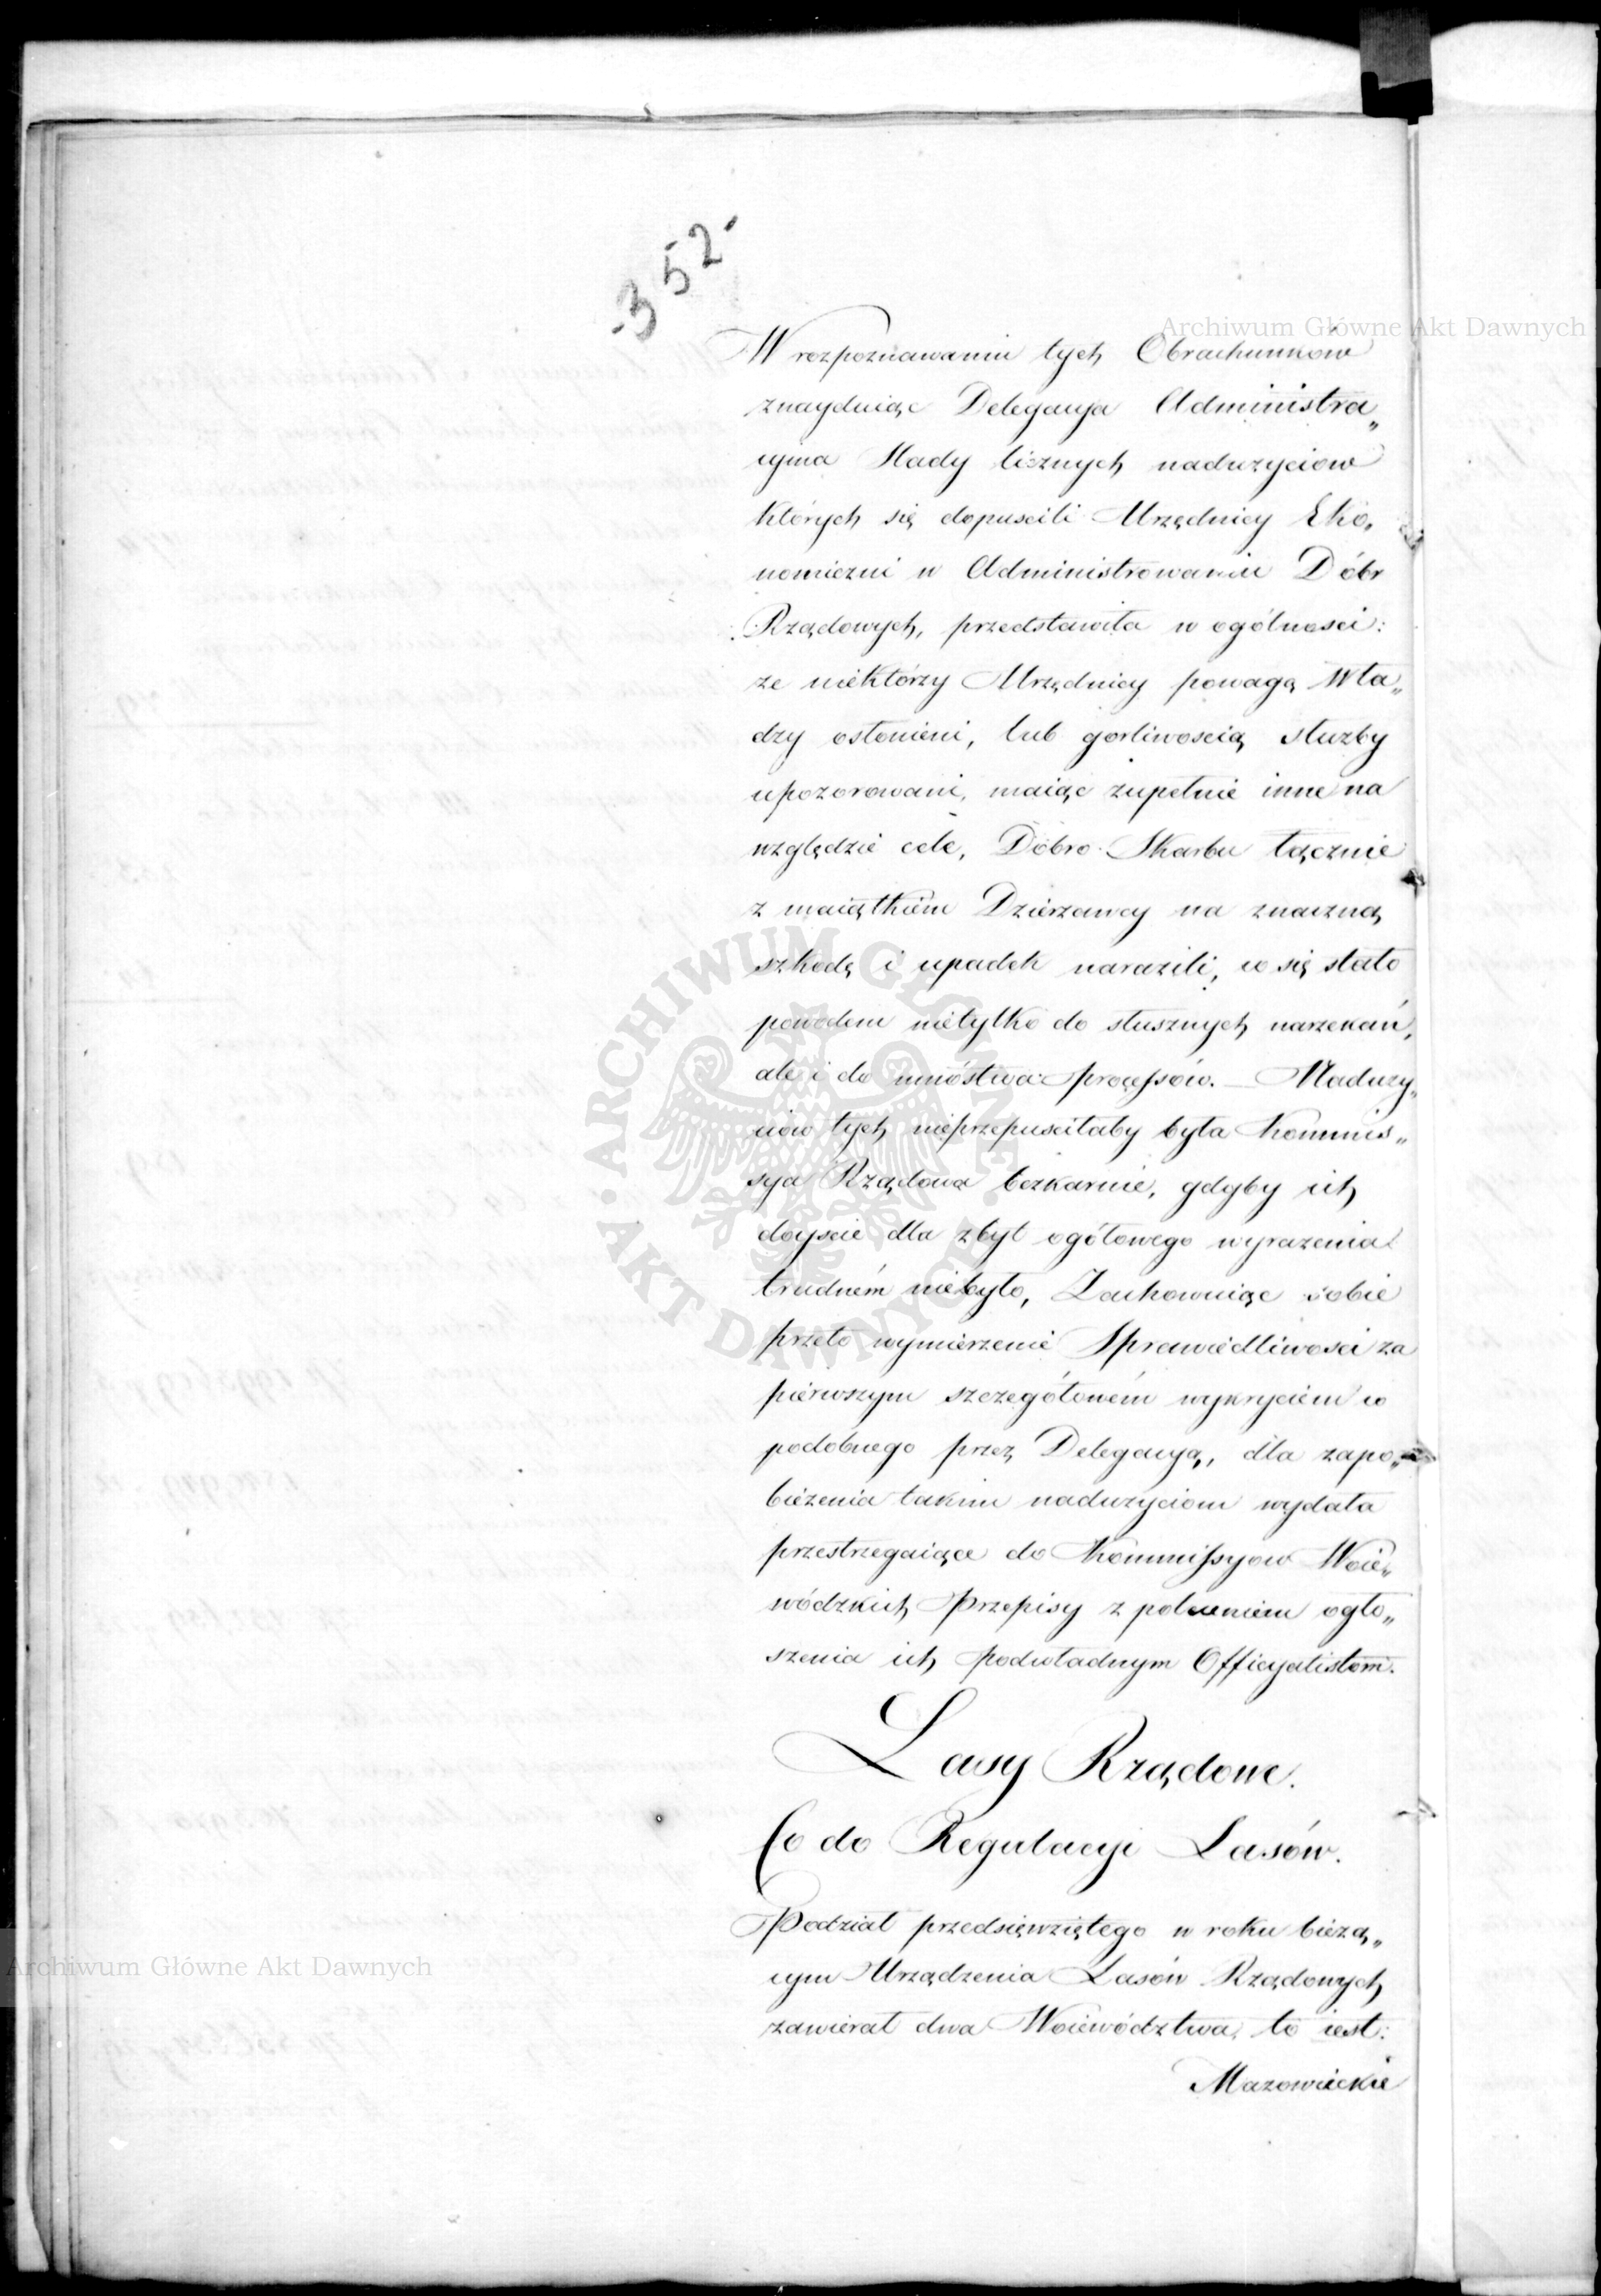 -352-
W rozpoznawaniu tych Obrachunków
znayduiąc Delegacya Administra„
cyjna ślady licznych nadużyciow
których się dopuscili Urzędnicy Eko„
nomiczni w Administrowaniu Dóbr
Rządowych, przedstawiła w ogólnosci:
ze niektórzy Urzędnicy powagą Wła„
dzy osłonieni, lub gorliwoscią służby
upozorowani, maiąc zupełnie inne na
względzie cele, Dobro Skarbu łącznie
z maiątkiem Dzierżawcy na znaczną
szkodę i upadek narazili, co się stało
powodem nietylko do słusznych narzekań,
ale i do mnóstwa processów. — Naduży„
ciow tych nieprzepusciłaby była Kommis„
sya Rządowa bezkarnie, gdyby ich
doyscie dla zbyt ogółowego wyrażenia
trudném niebyło, Zachowuiąc sobie
przeto wymierzenie Sprawiedliwosci za
pierwszym szczegółowém wykryciem co
podobnego przez Delegacyą, dla zapo„
bieżenia takim nadużyciom wydała
przestrzegaiące do Kommissyow Woie„
wódzkich Przepisy z poleceniem ogło„
szenia ich podwładnym Officyalistom.
Lasy Rządowe.
Co do Regulacyi Lasów.
Podział przedsięwziętego w roku bieżą„
cym Urządzenia Lasów Rządowych
zawierał dwa Woiewództwa, to iest:
Mazowieckie
Archiwum Główne Akt Dawnych
Archiwum Główne Akt Dawnych
ARCHIWUM GŁÓWNE
AKT DAWNYCH